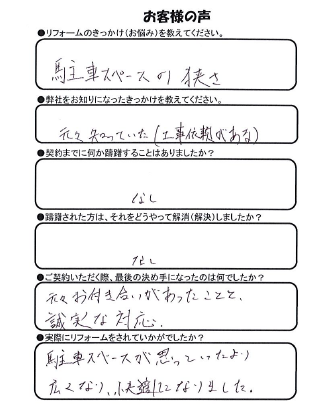 お客様の声
●リフォームのきっかけ(お悩み)を教えてください。
駐車スペースの狭さ
●弊社をお知りになったきっかけを教えてください。
元々知っていた(工事依頼がある)
●契約までに何か躊躇することはありましたか?
なし
●躊躇された方は、それをどうやって解消(解決)しましたか?
なし
●ご契約いただく際、最後の決め手になったのは何でしたか?
元々お付き合いがあったことと、
誠実な対応。
●実際にリフォームをされていかがでしたか?
駐車スペースが思っていたより
広くなり、快適になりました。